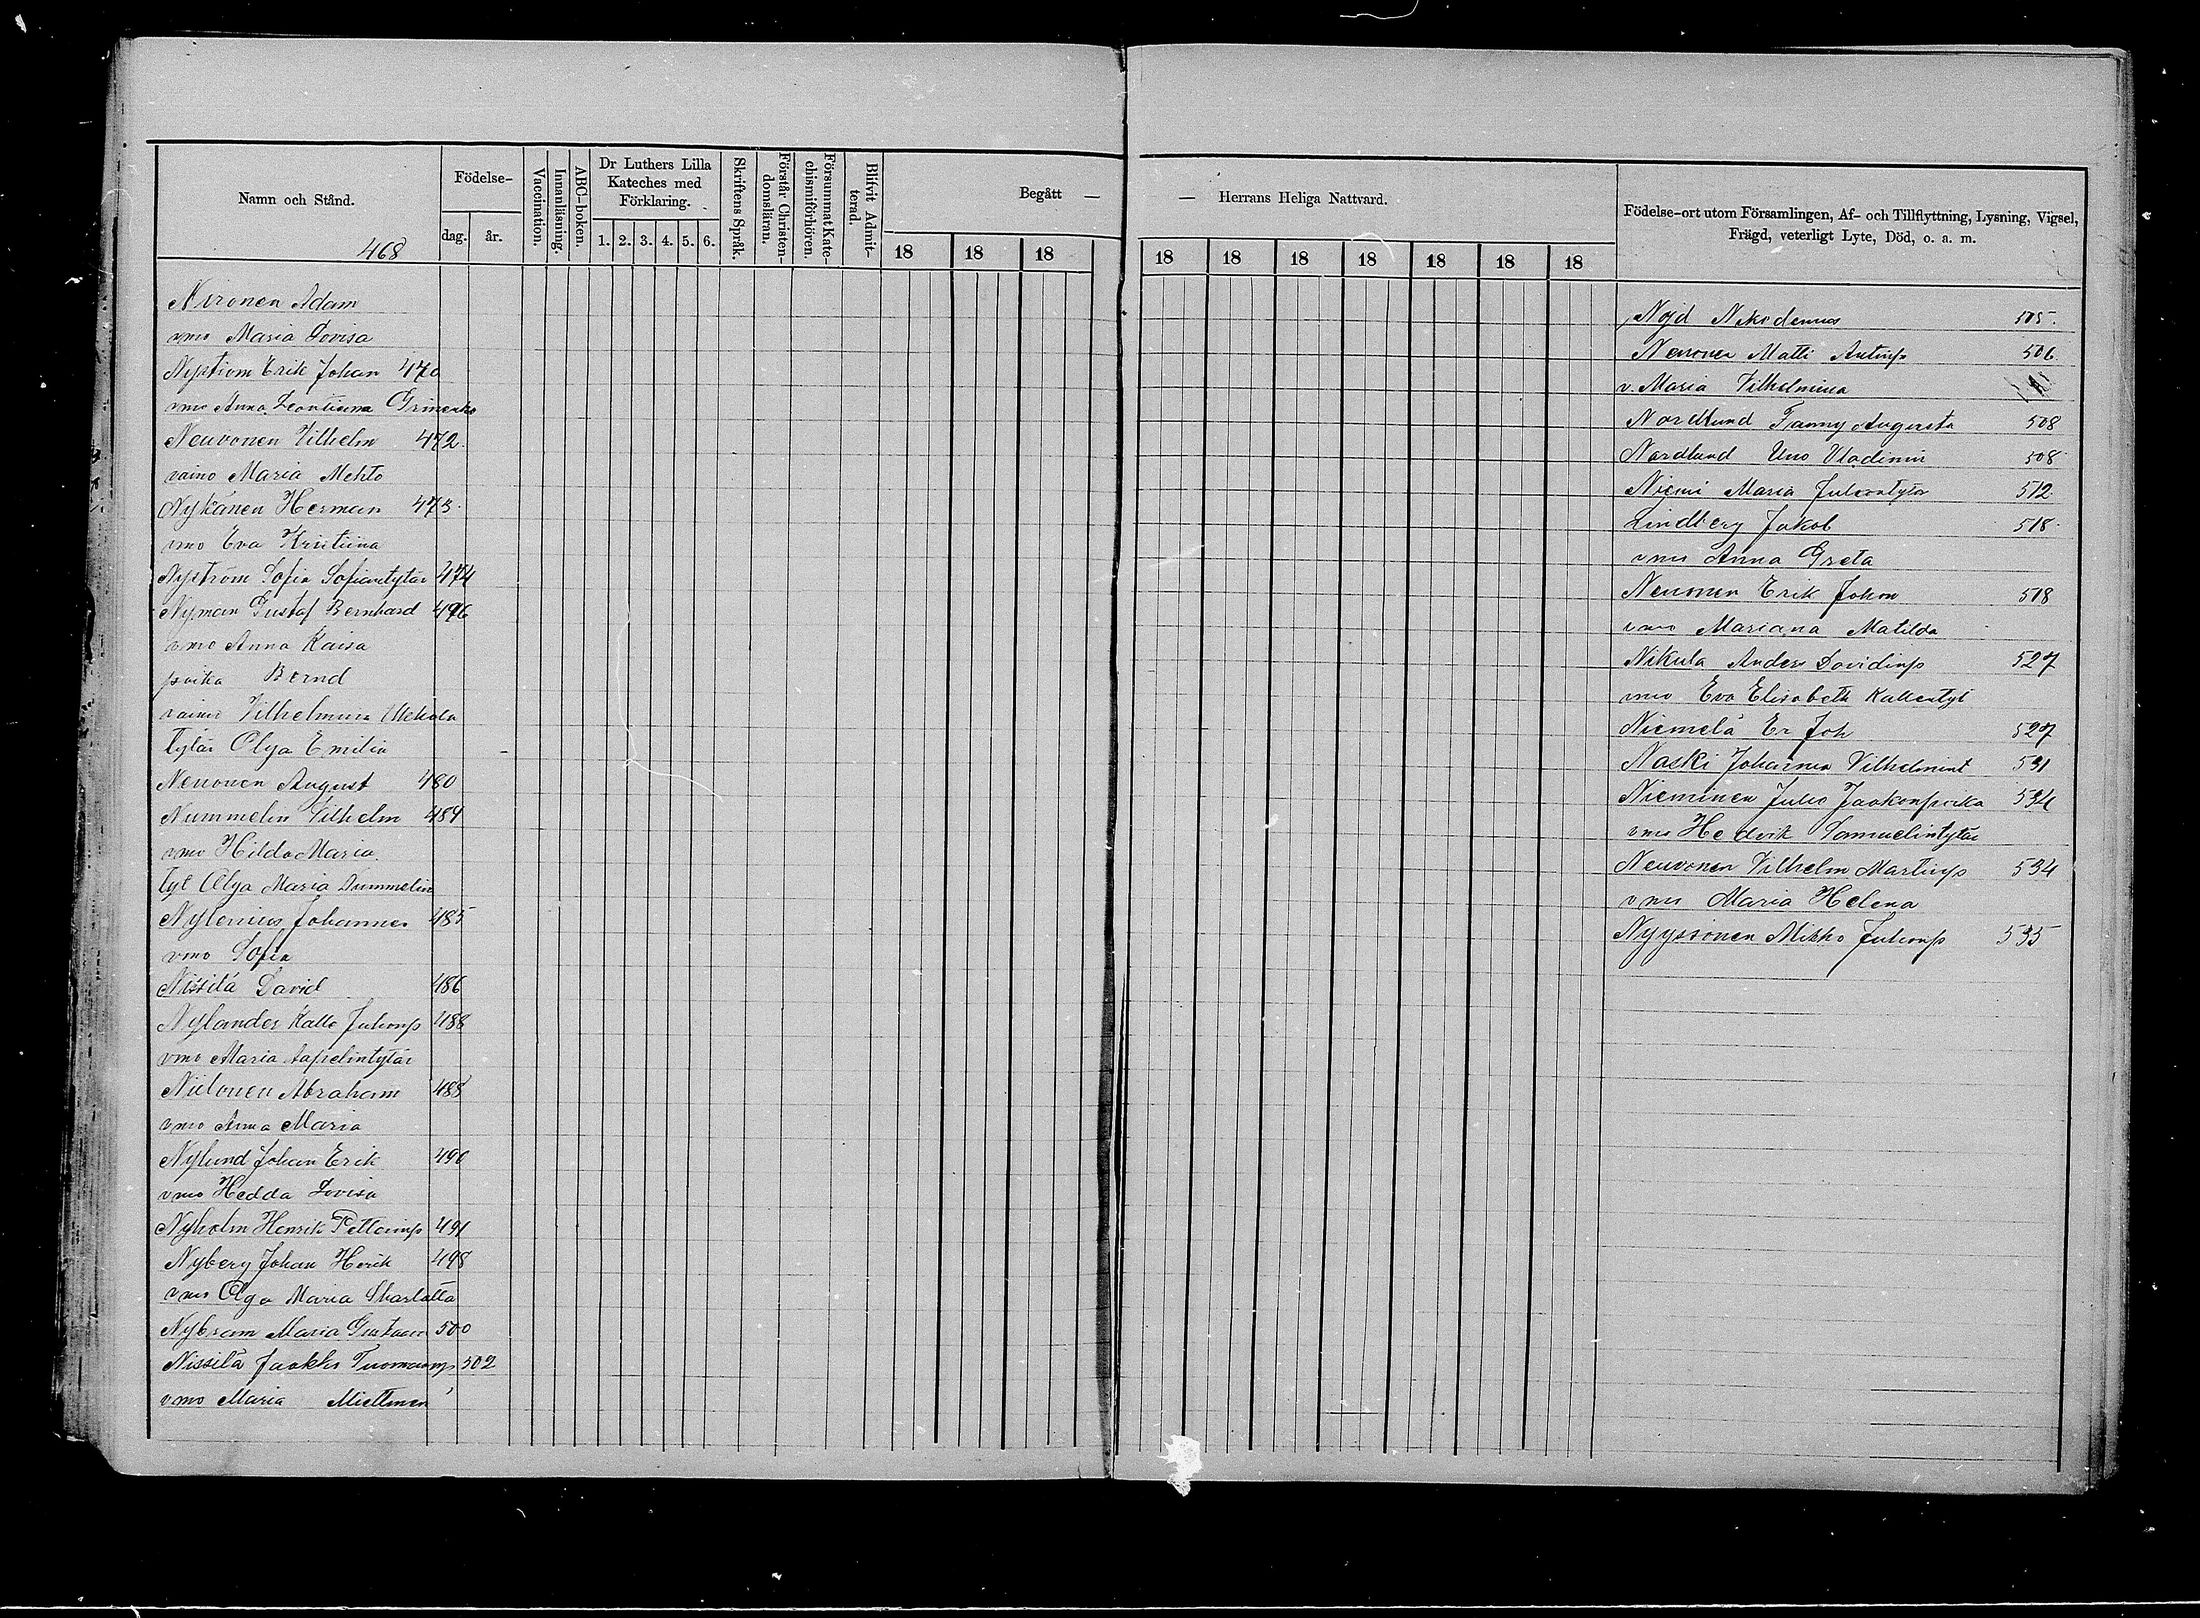 Namn och Stånd.
468
Födelse-
dag. år.
Vaccination.
Innanläsning.
ABC-boken.
Dr Luthers Lilla
Kateches med
Förklaring.
1. 2. 3. 4. 5. 6.
Skriftens Språk.
Förstår Christen-
domsläran.
Försummat Kate-
chismiförhören.
Blifvit Admit-
terad.
Begått —
18 18 18
Nironen Adam
vmo Maria Lovisa
Nyström Erik Johan 470
vmo Anna
Neuvonen Vilhelm 472.
vaimo Maria Mehto
Nykänen Herman 473.
vmo Eva Kristiina
Nyström Sofia Sofiantytär 474
Nyman Gustaf Bernhard 476
vmo Anna Kaisa
poika Bernd
vaimo Vilhelmina
tytär Olga Emilia
Neuvonen August 480
Nummelin Vilhelm 484
vmo Hilda Maria
tyt Olga Maria Nummelin
Nylenius Johannes 485
vmo Sofia
Nissilä David 486
Nylander Kalle Juhonp 488
vmo Maria Aapelintytär
Niilonen Abraham 488
vmo Anna Maria
Nylund Johan Erik 490
vmo Hedda Lovisa
Nyholm Henrik 491
Nyberg Johan Henrik 498
vmo Olga Maria Charlotta
Maria 500
Nissilä Jaakko Tuomaanp 502
vmo Maria Miettinen
— Herrans Heliga Nattvard.
18 18 18 18 18 18 18
Födelse-ort utom Församlingen, Af- och Tillflyttning, Lysning, Vigsel,
Frägd, veterligt Lyte, Död, o. a. m.
Nöjd Nikodemus 505.
Neuvonen Matti Antinp 506
v. Maria Vilhelmina
Nordlund Fanny Augusta 508
Nordlund Uno Vladimir 508
Niemi Maria Juhontytär 512.
Lindberg Jakob 518.
vmo Anna Greta
Neuvonen Erik Johan 518
vmo Mariana Matilda
Nikula Anders Davidinp 527
vmo Eva Elisabeth Kallentyt
Niemelä Er Joh 527
Naski Johanna Vilhelmint 531
Nieminen Juho Jaakonpoika 534
vmo Hedvik Samuelintytär
Neuvonen Vilhelm Martinp 534
vmo Maria Helena
Nyyssönen Mikko Juhonp 535